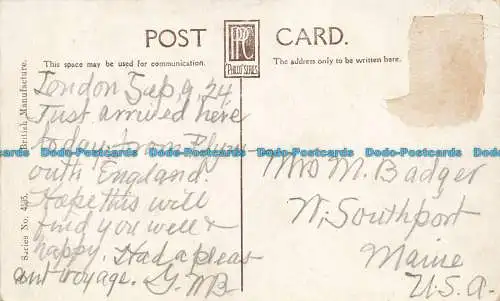 POST CARD.
PPC
PHILCO SERIES
This space may be used for communication.
The address only to be written here.
Series No. British Manufacture.
London Sep, 9, 24
Just arrived here
today from Plym
outh England.
Hope this will
find you well &
happy. Had a pleas
ant voyage. G.M.B
Mrs M. Badger
W. Southport
Maine
U.S.A.
Dodo-Postcards Dodo-Postcards Dodo-Postcards Dodo-Postcards Dodo-Postcards